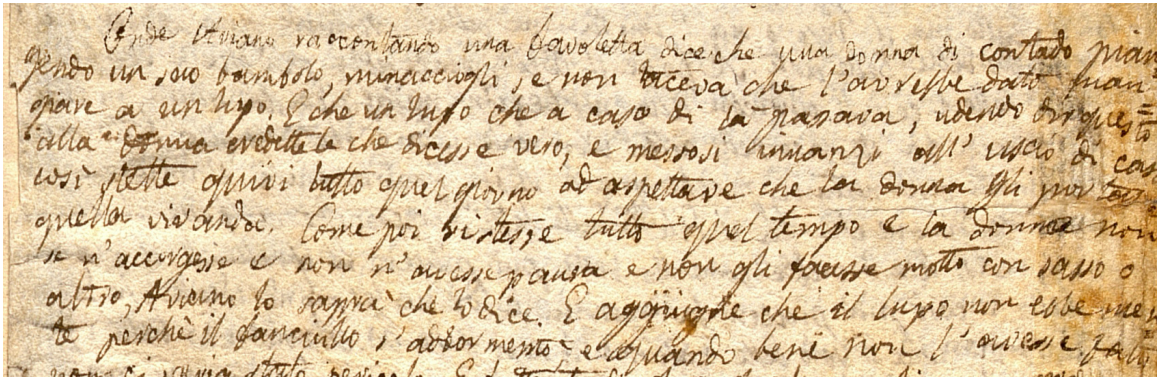 Onde Aviano raccontando una favoletta dice che una donna di contado pian
gendo un suo bambolo, minacciogli, se non taceva che l'avrebbe dato man
giare a un lupo. E che un lupo che a caso di là passava, udendo dir questo
alla donna credettele che dicesse vero, e messosi innanzi all'uscio di casa
così stette quivi tutto quel giorno ad aspettare che la donna gli portasse
quella vivanda. Come poi vi stesse tutto quel tempo e la donna non
se n'accorgesse e non n'avesse paura e non gli facesse motto con sasso o
altro, Aviano lo saprà che lo dice. E aggiugne che il lupo non ebbe nien
te perchè il fanciullo s'addormentò, e quando bene non l'avesse fatto
non ci